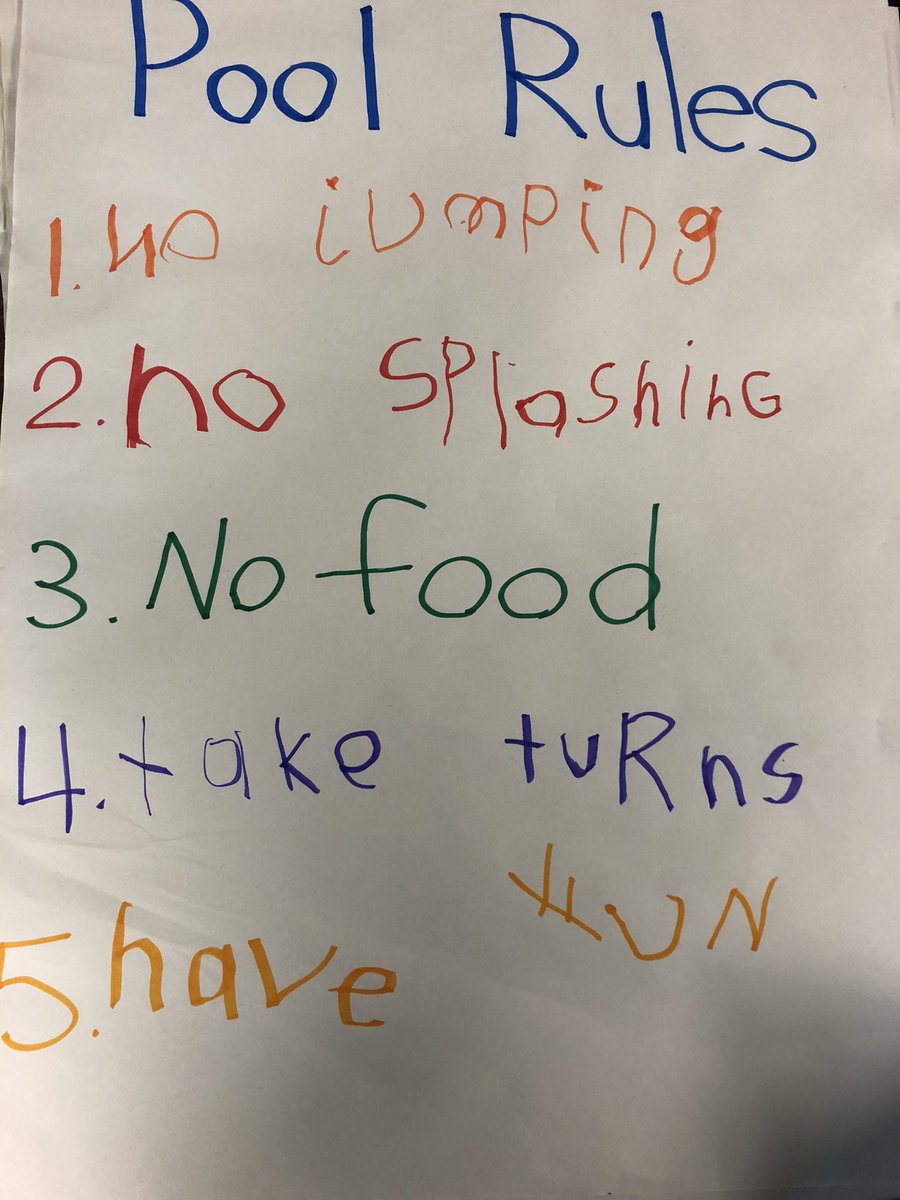 Pool Rules
1. no jumping
2. no SPlashinG
3. No food
4. take tuRns
5. have FUN